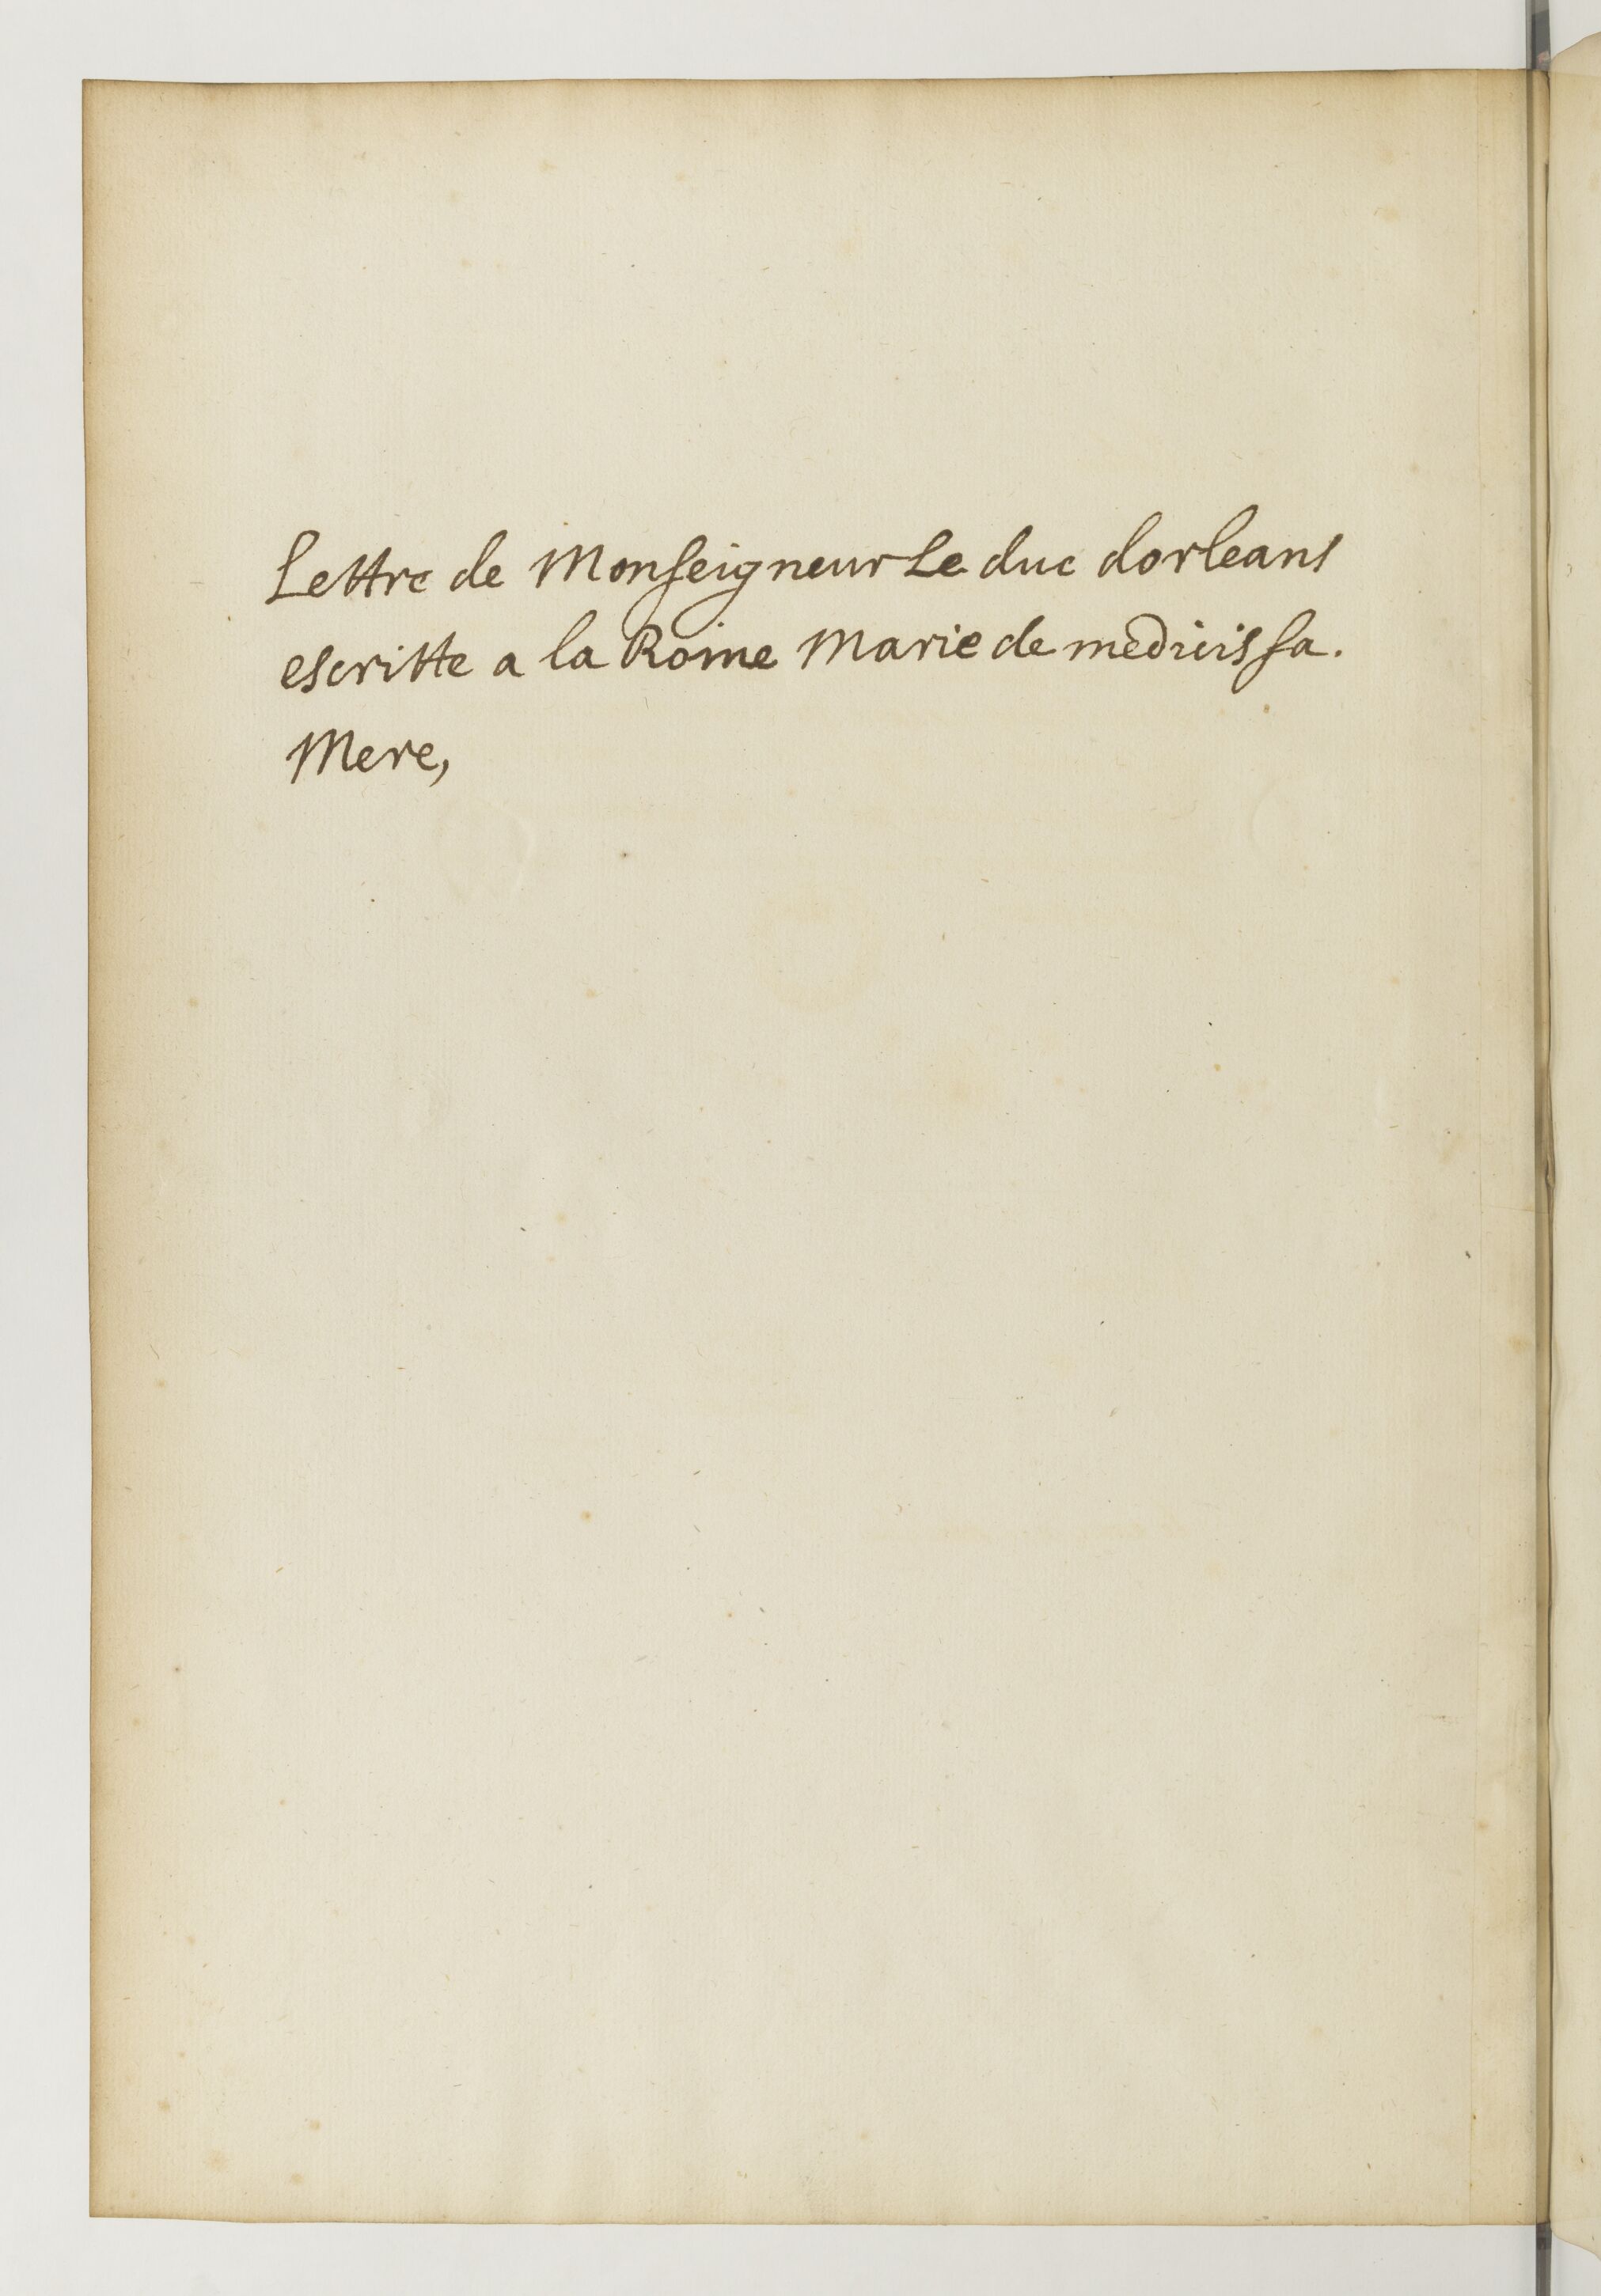 Lettre de Monseigneur Le duc dorleans
escritte a la Roine Marie de medicis sa.
Mere,